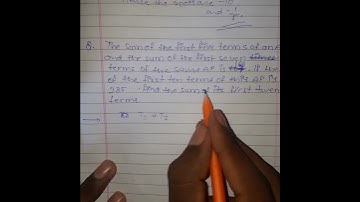 Hence the roots are -10
and -1/5
Q. The sum of the first five terms of an A
and the sum of the first seven
terms of the same AP is 167. If the
of the first ten terms of this AP is
235. Find the sum of its first twen
terms.
→ T₁ + T₂